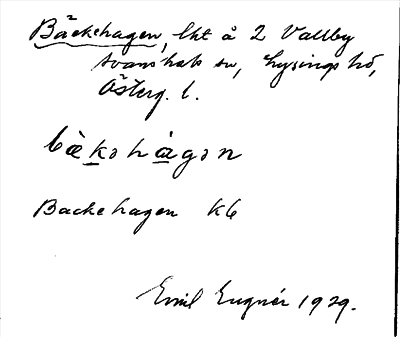 Bäckehagen, lht å 2 Vallby
Svanshals sn, Lysings hd,
Österg. l.
bàkəhàgən
Backehagen K6
Emil Eugnér 1929.